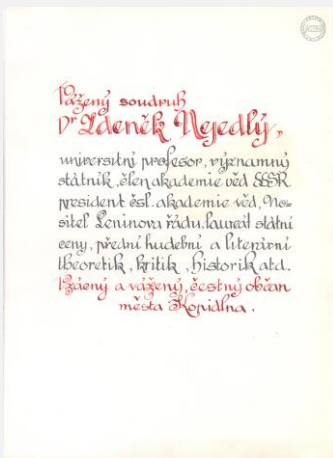 Vážený soudruh
Dr Zdeněk Nejedlý,
universitní profesor, významný
státník, člen akademie věd SSSR
president čsl. akademie věd, No-
sitel Leninova řádu, laureát státní
ceny, přední hudební a literární
theoretik, kritik, historik atd.
Vzácný a vážený, čestný občan
města Kopidlna.